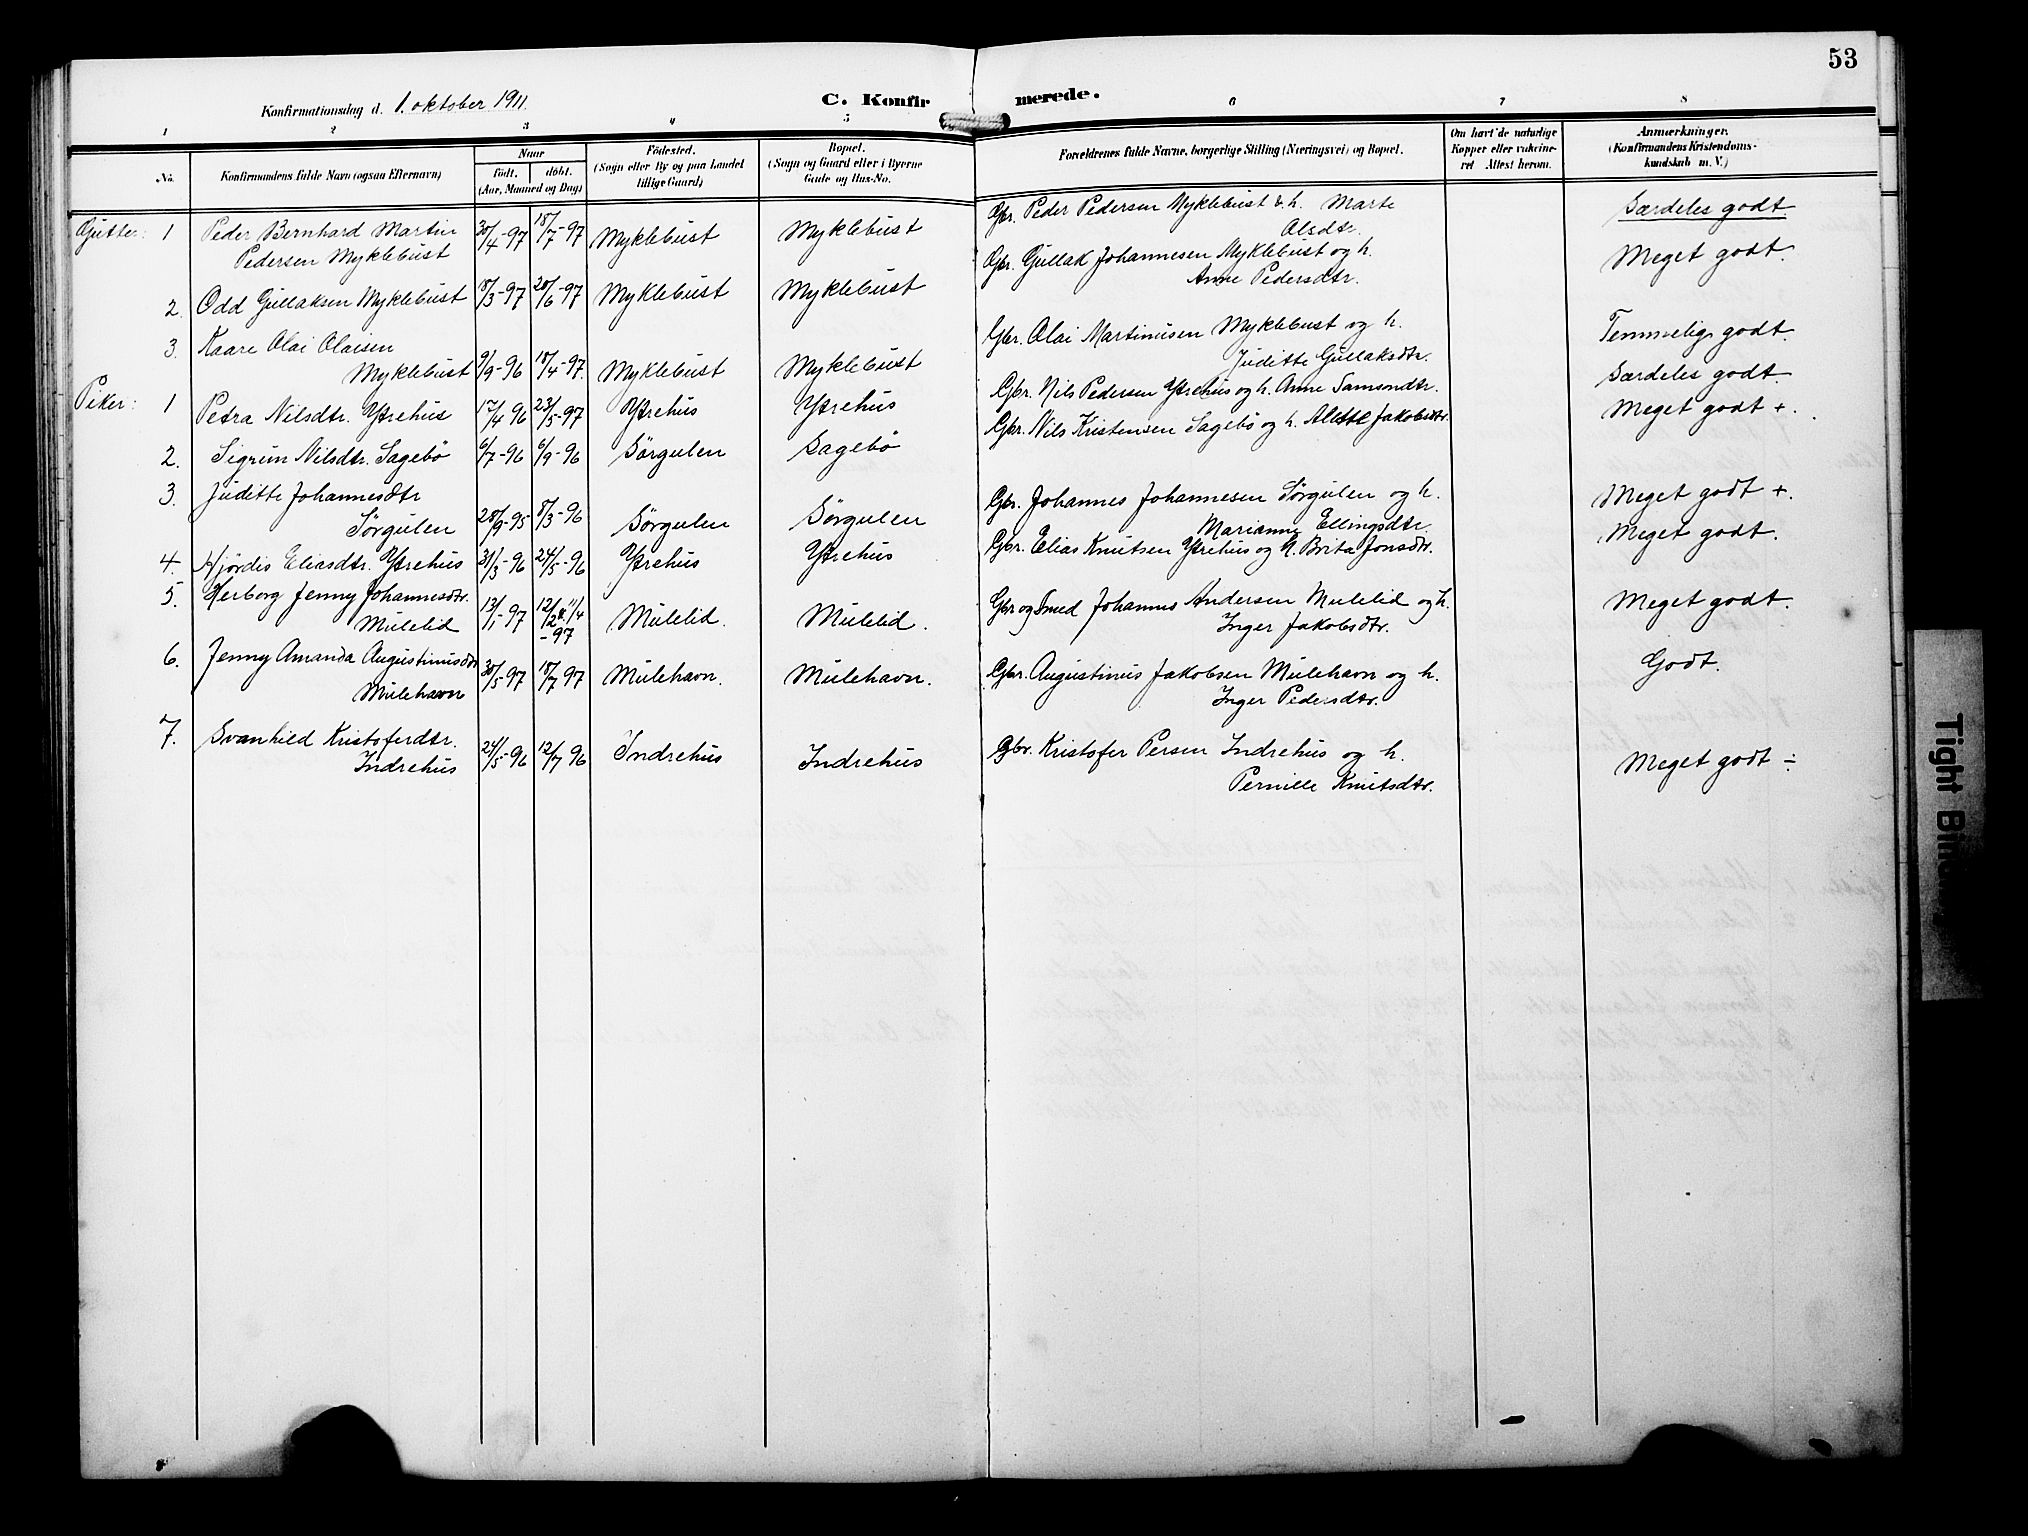 53
Konfirmationsdag d. 1. oktober 1911.
C. Konfirmerede.
1 2 3 4 5 6 7 8
No.
Konfirmandens fulde Navn (ogsaa Efternavn)
Naar
født. døbt.
(Aar, Maaned og Dag)
Födested.
(Sogn eller By og paa Landet
tillige Gaard)
Bopæl.
(Sogn og Gaard eller i Byerne
Gade og Hus-No.
Forældrenes fulde Navne, borgerlige Stilling (Næringsvei) og Bopæl.
Om havt de naturlige
Kopper eller vakcine-
ret Attest herom.
Anmærkninger.
(Konfirmandens Kristendoms-
kundskab m. V.)
Gutter: 1 Peder Bernhard Martin
Pedersen Myklebust
30/4-97 18/7-97 Myklebust Myklebust
Gbr. Peder Pedersen Myklebust & h. Marte
Olsdtr.
Særdeles godt
2. Odd Gullaksen Myklebust 18/3-97 20/6-97 Myklebust Myklebust
Gbr. Gullak Johannesen Myklebust og h.
Anne Pedersdtr.
Meget godt.
3. Kaare Olai Olaisen
Myklebust 9/9-96 18/4-97. Myklebust Myklebust
Gbr. Olai Martinusen Myklebust og h.
Juditte Gullaksdtr.
Temmelig godt.
Piker: 1 Petra Nilsdtr. Ytrehus 17/4 96 23/5-97 Ytrehus Ytrehus
Gbr. Nils Pedersen Ytrehus og h. Anne Samsondtr.
Særdeles godt.
2. Sigrun Nilsdtr. Sagebö 6/7-96 6/9-96 Sörgulen Sagebö
Gbr. Nils Kristensen Sagebö og h. Alette Jakobsdtr.
Meget godt +.
3. Juditte Johannesdtr
Sørgulen 28/9-95 8/3-96 Sørgulen Sørgulen
Gbr. Johannes Johannesen Sørgulen og h.
Marianne Ellingsdtr.
Meget godt +.
4. Hjördis Eliasdtr. Ytrehus 31/3-96 24/5-96 Ytrehus Ytrehus
Gbr. Elias Knutsen Ytrehus og h. Brita Jonsdtr.
Meget godt.
5. Herborg Jenny Johannesdtr.
Mulelid 13/1-97 12/2 & 11/4
-97
Mulelid. Mulelid.
Gbr og Smed Johannes Andersen Mulelid og h.
Inger Jakobsdtr.
Meget godt.
6. Jenny Amanda Augustinusdtr
Mulehavn 30/5-97 18/7 97 Mulehavn. Mulehavn.
Gbr. Augustinus Jakobsen Mulehavn og h.
Inger Pedersdtr.
Godt.
7. Svanhild Kristoferdtr.
Indrehus 24/5-96 12/7 96 Indrehus Indrehus
Gbr. Kristofer Persen Indrehus og h.
Pernille Knutsdtr.
Meget godt ÷
Tight Bin